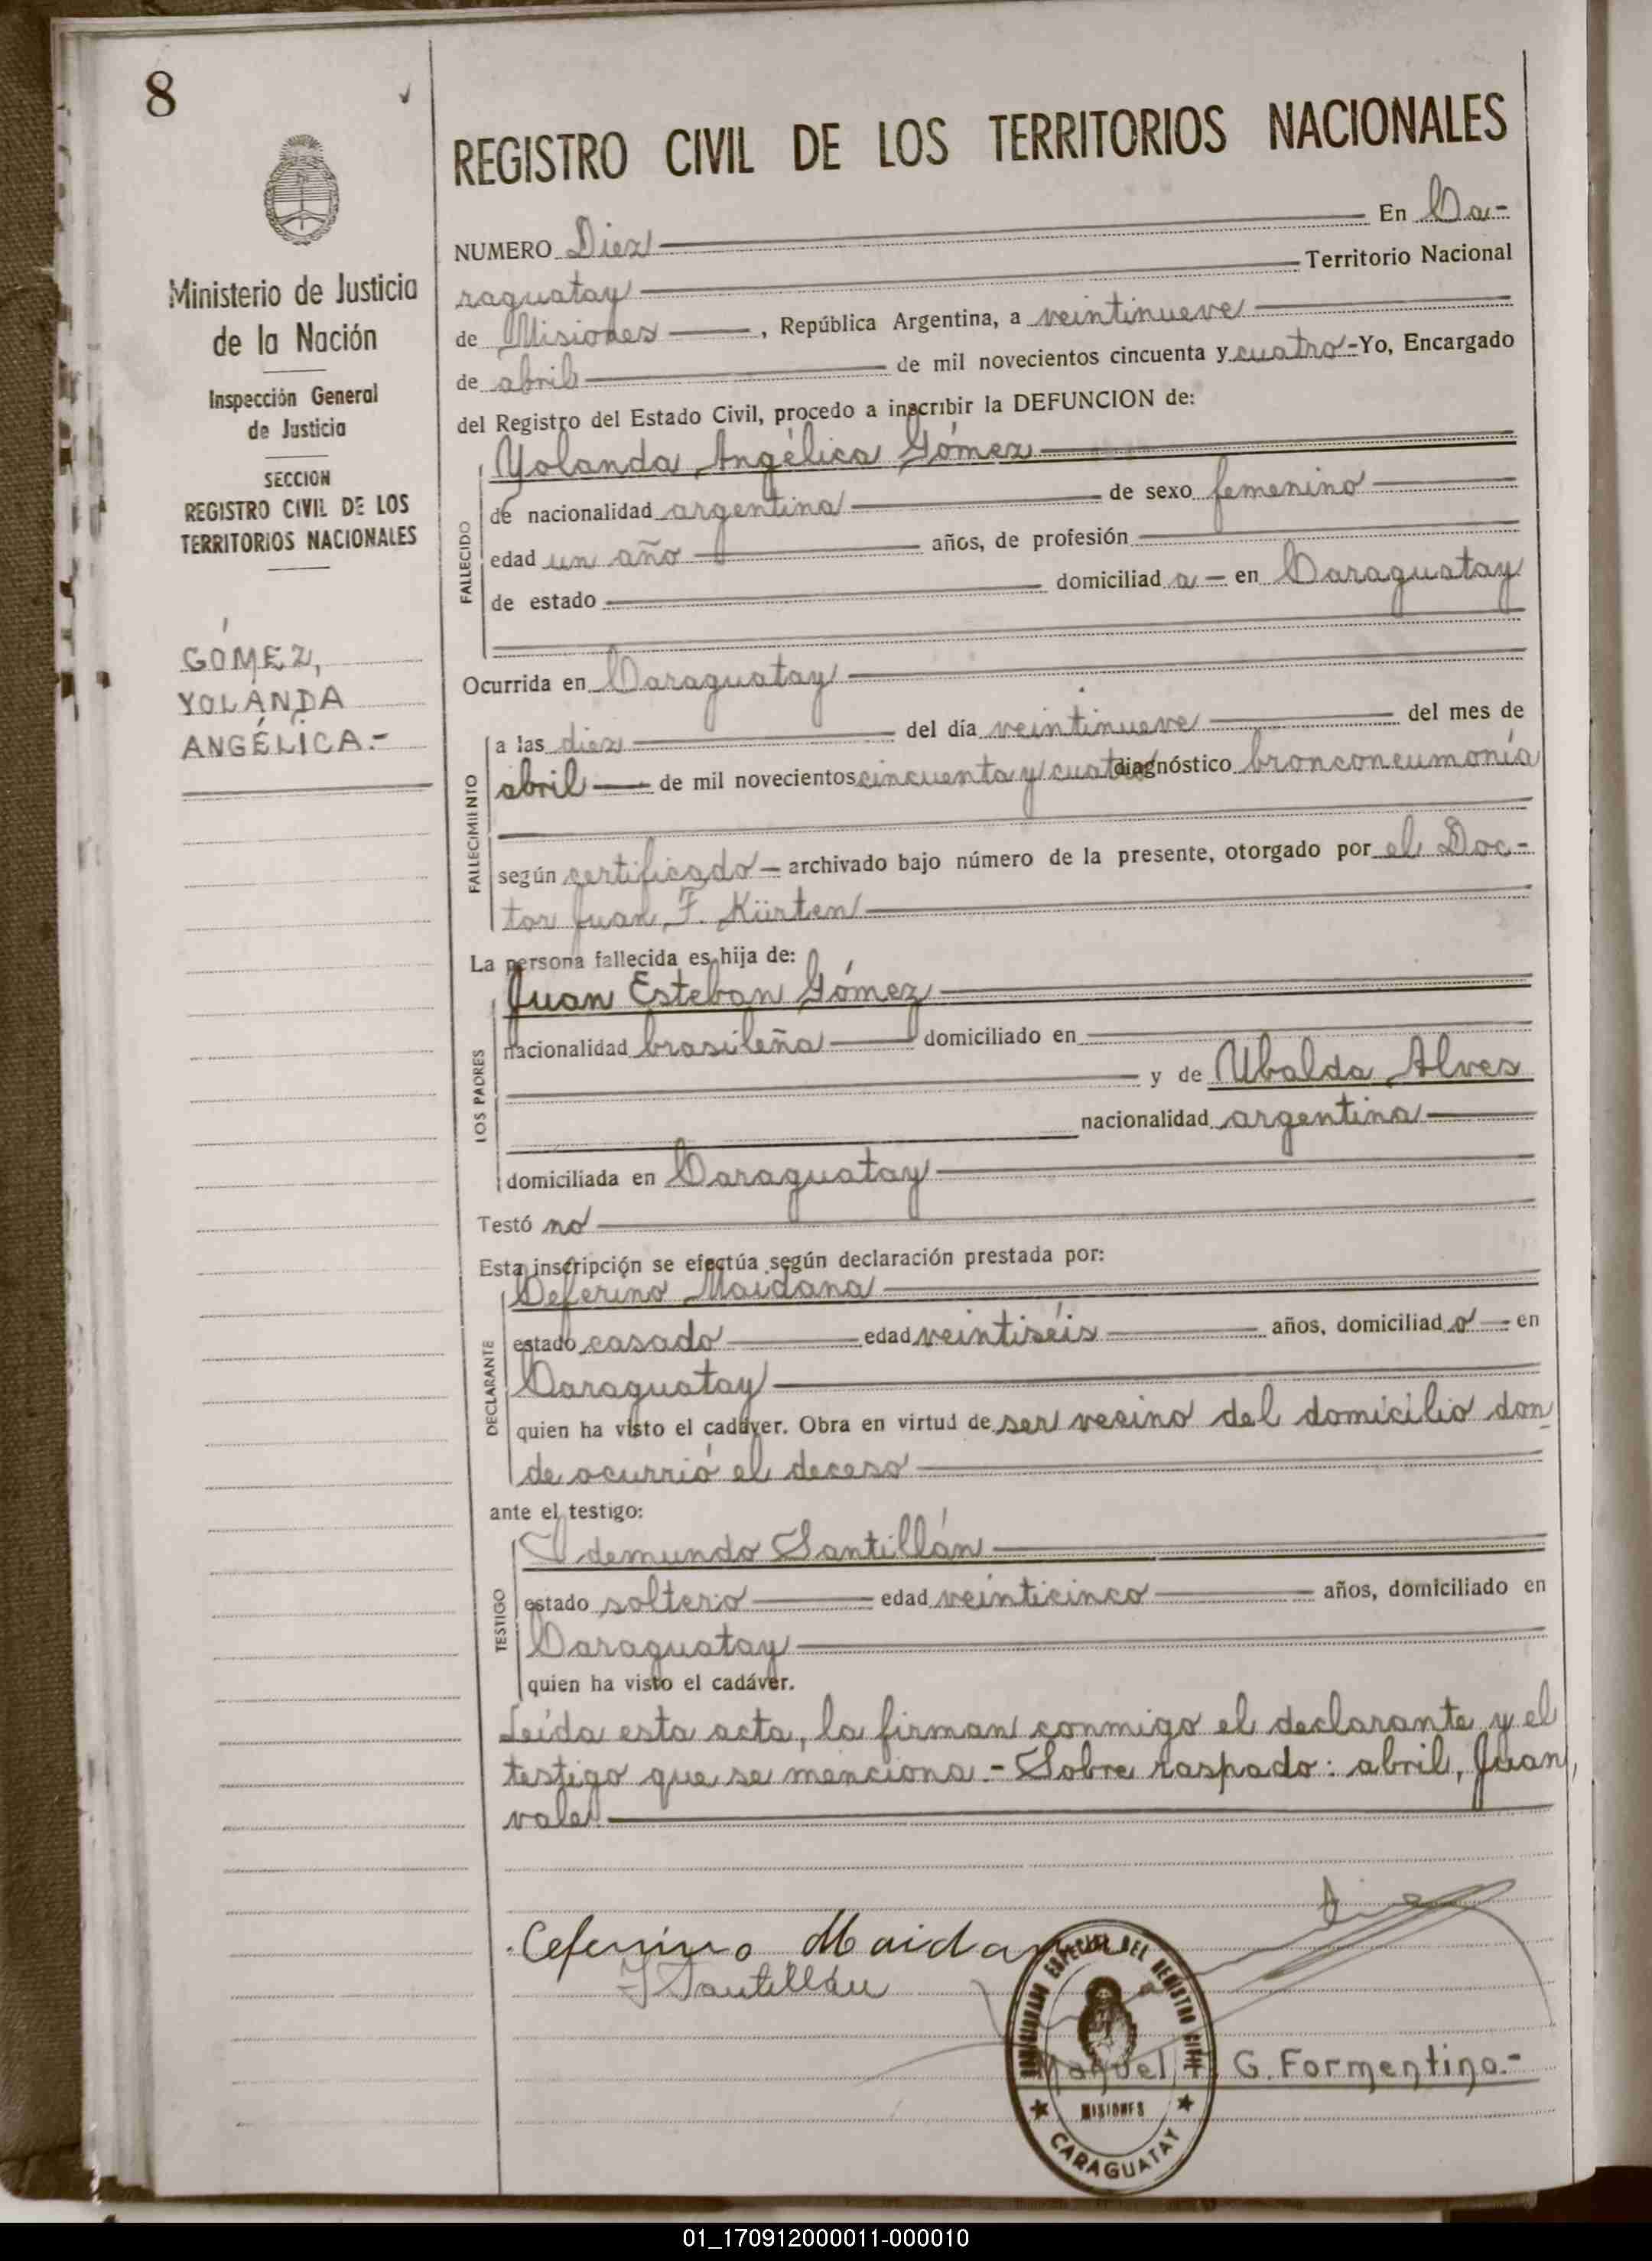 8
Ministerio de Justicia
de la Nación
Inspección General
de Justicia
SECCION
REGISTRO CIVIL DE LOS
TERRITORIOS NACIONALES
GÓMEZ,
YOLANDA
ANGÉLICA.-
REGISTRO CIVIL DE LOS TERRITORIOS NACIONALES
NUMERO Diez En Ca-
raguatay Territorio Nacional
de Misiones, República Argentina, a veintinueve
de abril de mil novecientos cincuenta y cuatro - Yo, Encargado
del Registro del Estado Civil, procedo a inscribir la DEFUNCION de:
FALLECIDO
Yolanda Angélica Gómez
de nacionalidad argentina de sexo femenino
edad un año años, de profesión
de estado domiciliad a en Caraguatay
Ocurrida en Caraguatay
FALLECIMIENTO
a las diez del día veintinueve del mes de
abril de mil novecientos cincuenta y cuatro diagnóstico bronconeumonía
según certificado archivado bajo número de la presente, otorgado por el Doc-
tor Juan F. Kürten
La persona fallecida es hija de:
LOS PADRES
Juan Esteban Gómez
nacionalidad brasileña domiciliado en
y de Ubalda Alves
nacionalidad argentina
domiciliada en Caraguatay
Testó no
Esta inscripción se efectúa según declaración prestada por:
DECLARANTE
Ceferino Maidana
estado casado edad veintiséis años, domiciliad o en
Caraguatay
quien ha visto el cadáver. Obra en virtud de ser vecino del domicilio don
de ocurrió el deceso
ante el testigo:
TESTIGO
Idemundo Santillán
estado soltero edad veinticinco años, domiciliado en
Caraguatay
quien ha visto el cadáver.
Leída esta acta, la firman conmigo el declarante y el
testigo que se menciona.- Sobre raspado: abril, Juan,
vale.
Ceferino Maidana
I Santillán
ESPECIAL DEL REGISTRO CIVIL
Manuel F. G. Formentino.-
MISIONES
CARAGUATAY
01_170912000011-000010